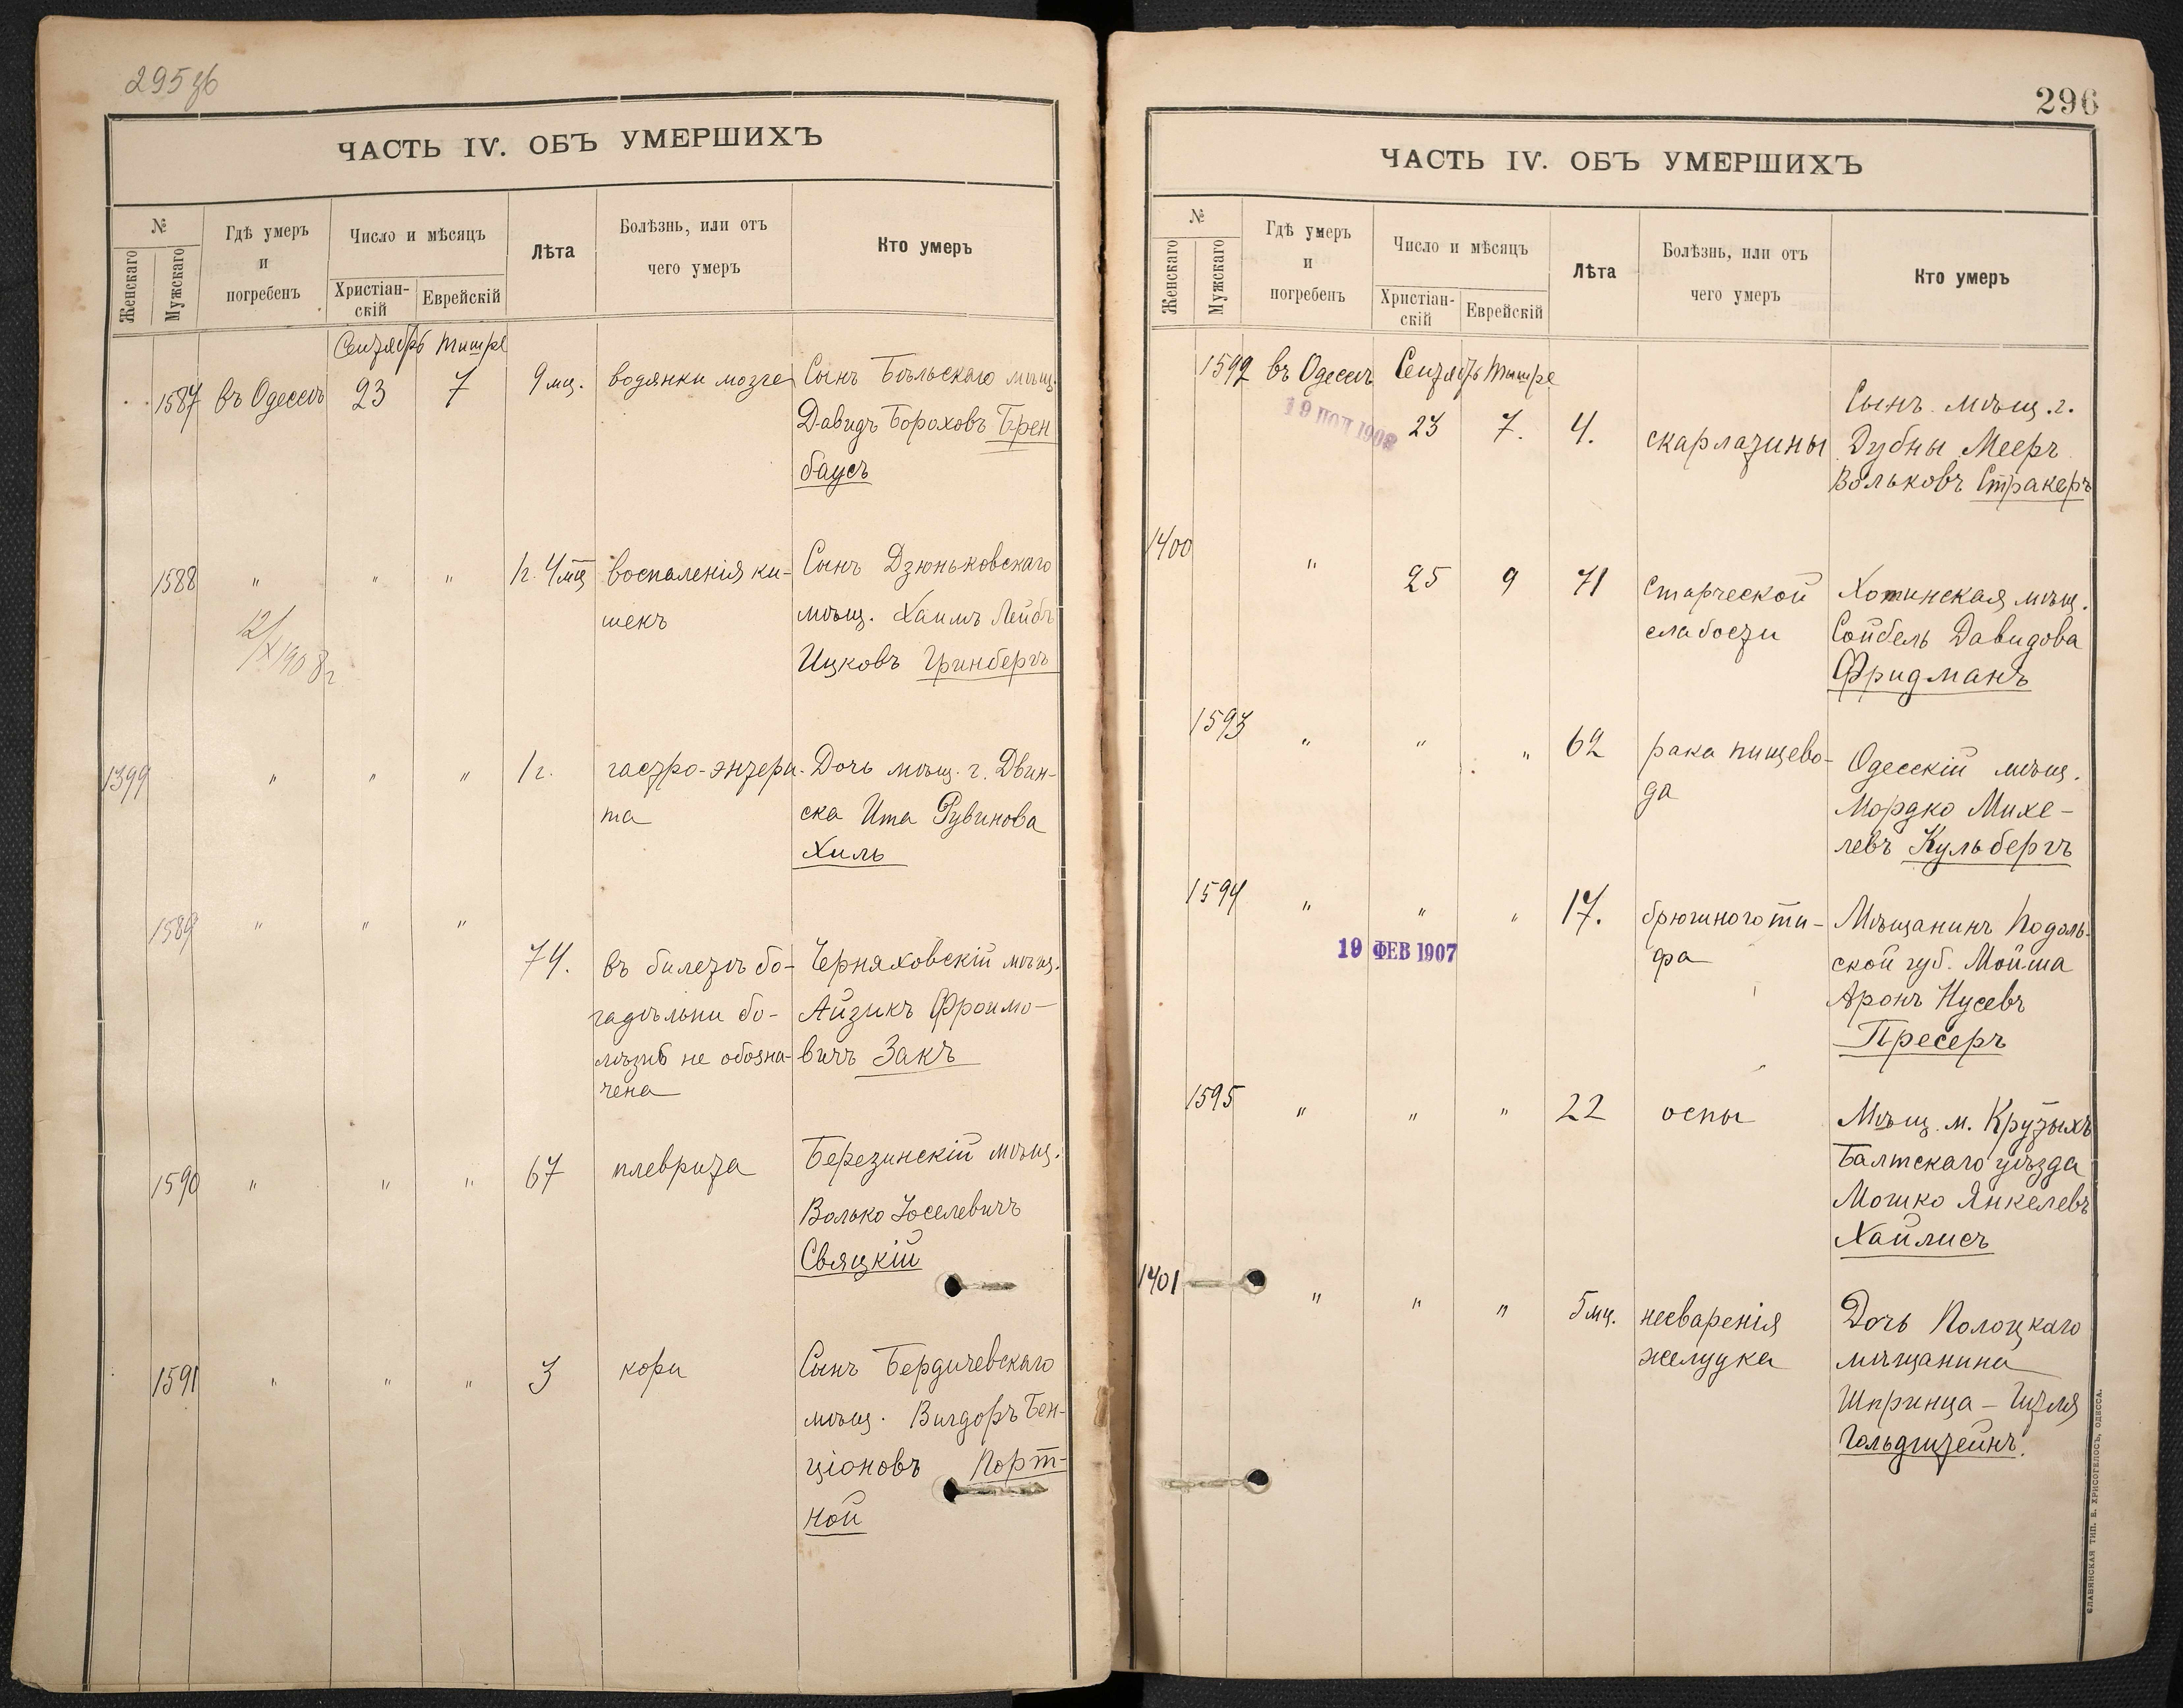 295 об
ЧАСТЬ IV. ОБЪ УМЕРШИХЪ
№
Женскаго
Мужскаго
Гдѣ умеръ
и
погребенъ
Число и мѣсяцъ
Христіан-
скій
Еврейскій
Лѣта
Болѣзнь, или отъ
чего умеръ
Кто умеръ
Сентябрь Тишре
1587 въ Одессѣ 23 7 9 мц. водянки мозга Сынъ Бѣльскаго мѣщ.
Давидъ Бороховъ Брен
баусъ
1588 " " " 1 г. 4 мц воспаленія ки- Сынъ Дзюньковскаго
шекъ мѣщ. Хаимъ Лейбъ
12/X 1908 г
Ицковъ Гринбергъ
1399 " " " 1 г. гастро-энтери- Дочь мѣщ. г. Двин-
та ска Ита Рувинова
Хиль
1589 " " "
74. въ билетѣ бо- Черняховскій мѣщ.
гадѣльни бо- Айзикъ Фроимо-
лѣзнь не обозна- вичъ Закъ
чена
1590 " " " 67 плеврита Березинскій мѣщ.
Волько Іоселевичъ
Свяцкій
1591 " " " 3 кори Сынъ Бердичевскаго
мѣщ. Вигдоръ Бен-
ціоновъ Порт-
ной
296
ЧАСТЬ IV. ОБЪ УМЕРШИХЪ
№
Женскаго
Мужскаго
Гдѣ умеръ
и
погребенъ
Число и мѣсяцъ
Христіан-
скій
Еврейскій
Лѣта
Болѣзнь, или отъ
чего умеръ
Кто умеръ
1592 въ Одессѣ Сентябрь Тишре
19 1908 23 7. 4. скарлатины Сынъ мѣщ. г.
Дубны Мееръ
Вольковъ Стракеръ
1400 " 25 9 71 старческой Хотинская мѣщ.
слабости Сойбель Давидова
Фридманъ
1593 " " " 62 рака пищево- Одесскій мѣщ.
да Мордко Михе-
левъ Кульбергъ
1594 " " " 17. брюшного ти- Мѣщанинъ Подоль-
19 ФЕВ 1907
фа ской губ. Мойша
Аронъ Нусевъ
Пресеръ
1595 " " " 22 оспы Мѣщ. м. Крутыхъ
Балтскаго уѣзда
Мошко Янкелевъ
Хайлисъ
1401 " " " 5 мц. несваренія Дочь Полоцкаго
желудка мѣщанина
Шпринца - Итля
Гольдштейнъ.
СЛАВЯНСКАЯ ТИП. Е. ХРИСОГЕЛОСЪ, ОДЕССА.